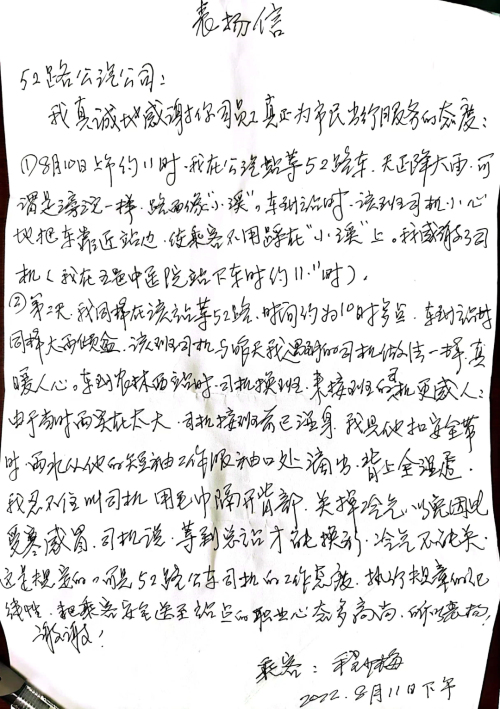 表扬信
52路公汽公司:
我真诚地感谢你司员工真正为市民出行服务的态度:
①8月10日上午约11时,我在公汽站等52路车,天正降大雨,可
谓是滂沱一样,路面像"小溪"。车到站时,该班司机小心
地把车靠近站边,使乘客不用踩在"小溪"上。我感谢了司
机(我在中医院站下车时约11 时)。
②第二天我同样在该站等52路,时间约为10时多点,车到站时
同样大雨倾盆,该班司机与昨天我遇到的司机做法一样,真
暖人心。车到农林西路时,司机换班,来接班的司机更感人:
由于当时雨实在太大,司机接班前已湿身,我见他扣安全带
时,雨水从他的短袖工作服袖口处滴出,背上全湿透,
我忍不住叫司机用毛巾隔开背部,关掉冷气,以免因此
受寒感冒,司机说,等到总站才能换衫,冷气不能关,
这是规定的。可见52路公车司机的工作态度,执行规章的纪
律性,把乘客安全送至站点的职业心态多高尚,所以表扬,
谢谢!
乘客:梅
2022.8月11日下午